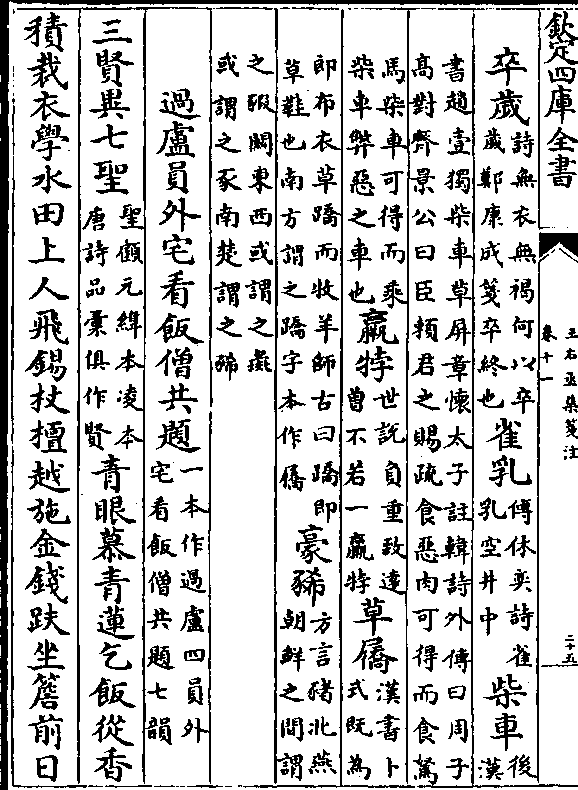 欽定四庫全書
王右丞集箋注
卷十一
二十五
卒歲詩無衣無褐何以卒歲鄭康成箋卒終也雀乳傅休奕詩雀乳空井中柴車後漢
書趙壹獨柴車草屏章懷太子註韓詩外傳曰周子
高對齊景公曰臣頼君之賜疏食惡肉可得而食駑
馬柴車可得而乘柴車弊惡之車也羸牸世説負重致逺曾不若一羸牸草屩漢書卜式既為
即布衣草蹻而牧羊師古曰蹻即草鞋也南方謂之蹻字本作屩豪豨方言豬北燕朝鮮之間謂
之豭關東西或謂之彘
或謂之豕南楚謂之豨
過盧員外宅看飯僧共題一本作過盧四員外宅看飯僧共題七韻
三賢異七聖聖顧元緯本凌本唐詩品彙俱作賢青眼慕青蓮乞飯從香
積裁衣學水田上人飛錫杖檀越施金錢趺坐簷前日